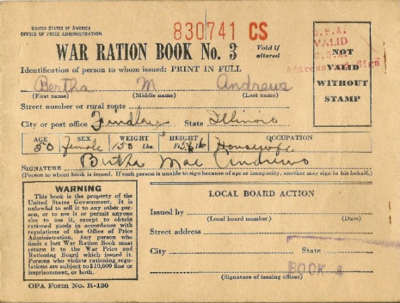 UNITED STATES OF AMERICA
OFFICE OF PRICE ADMINISTRATION
830741 CS
WAR RATION BOOK No. 3
Void if altered
O.P.A.
VALID
NOT VALID WITHOUT STAMP
Identification of person to whom issued: PRINT IN FULL
Bertha M Andrews
(First name) (Middle name) (Last name)
Street number or rural route
City or post office Findlay State Illinois
AGE SEX WEIGHT HEIGHT OCCUPATION
50 Female 150 Lbs. Ft. In. Housewife
SIGNATURE Bertha Mae Andrews
(Person to whom book is issued. If such person is unable to sign because of age or incapacity, another may sign in his behalf.)
WARNING
This book is the property of the
United States Government. It is
unlawful to sell it to any other person,
or to use it or permit anyone
else to use it, except to obtain
rationed goods in accordance with
regulations of the Office of Price
Administration. Any person who
finds a lost War Ration Book must
return it to the War Price and
Rationing Board which issued it.
Persons who violate rationing regulations
are subject to $10,000 fine or
imprisonment, or both.
LOCAL BOARD ACTION
Issued by
(Local board number) (Date)
Street address
City State
BOOK 4
(Signature of issuing officer)
OPA Form No. R-130